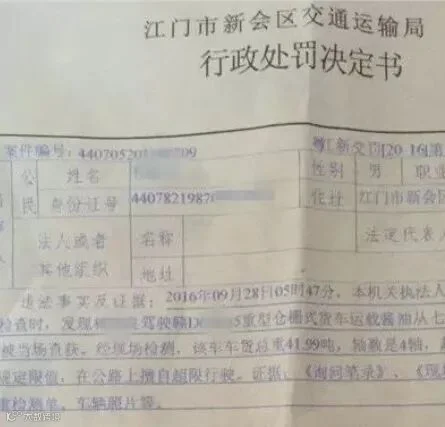 江门市新会区交通运输局
行政处罚决定书
案件编号: 44070520 709
粤[新交罚[2016]第
公 姓名 性别 男 职业
民 身份证号 4407821987 住址 江门市新会
法人或者 名称 法定代表人
其他组织 地址
违法事实及证据: 2016年09月28日05时47分, 本机关执法人
检查时, 发现 驾驶赣D 5重型仓栅式货车运载酱油从七
被当场查获。经现场检测, 该车车货总重41.99吨, 轴数是4轴,
规定限值, 在公路上擅自超限行驶。证据: 《询问笔录》、《现
检测单、车辆照片等。
大叔传动